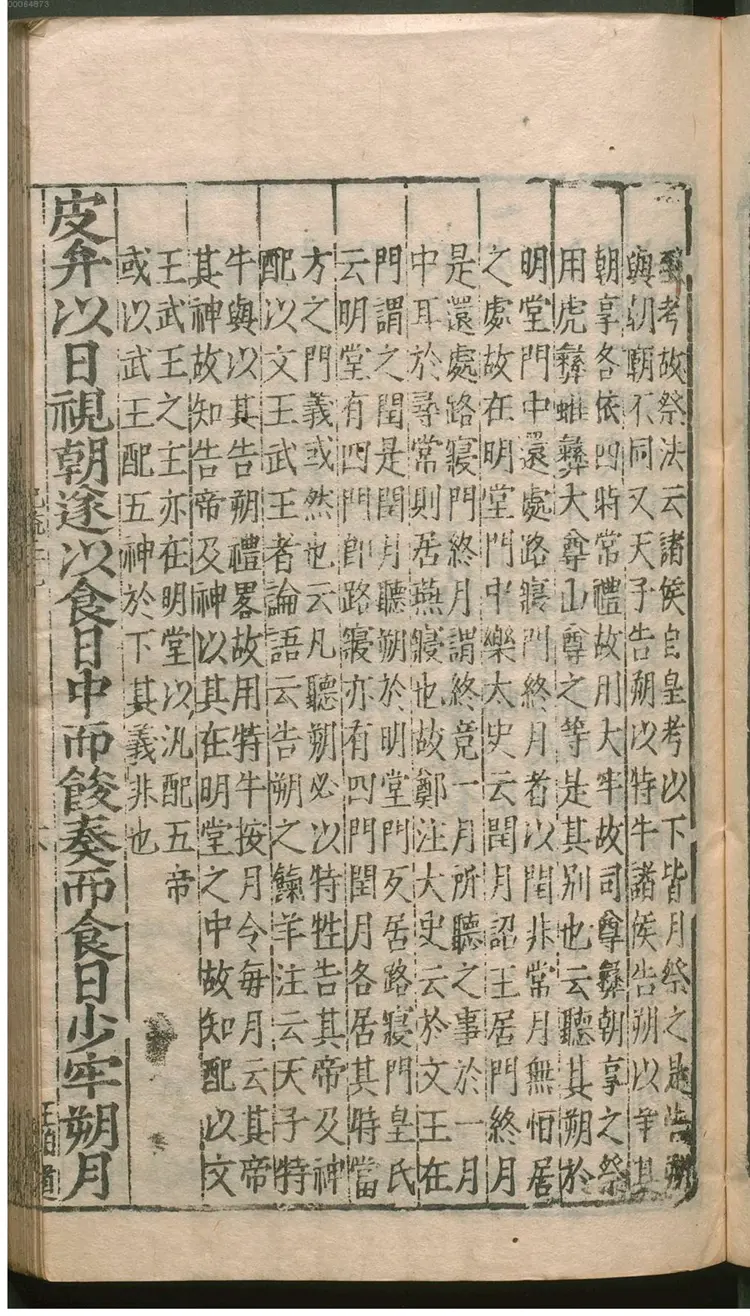 考故祭法云諸侯自皇考以下皆月祭之是告朔
與朝朝不同又天子告朔以特牛諸侯告朔以羊其
朝享各依四時常禮故用大牢故司尊彝朝享之祭
用虎彝蜼彝大尊山尊之等是其別也云聽其朔於
明堂門中還處路寢門終月者以閏非常月無恒居
之處故在明堂門中樂太史云閏月詔王居門終月
是還處路寢門終月謂終竟一月所聽之事於一月
中耳於尋常則居燕寢也故鄭注大史云於文王在
門謂之閏是閏月聽朔於明堂門反居路寢門皇氏
云明堂有四門即路寢亦有四門閏月各居其時當
方之門義或然也云凡聽朔必以特牲告其帝及神
配以文王武王者論語云告朔之餼羊注云天子特
牛與以其告朔禮畧故用特牛按月令每月云其帝
其神故知告帝及神以其在明堂之中故知配以文
王武王之主亦在明堂以汎配五帝
或以武王配五神於下其義非也
皮弁以日視朝遂以食日中而餕奏而食日少牢朔月